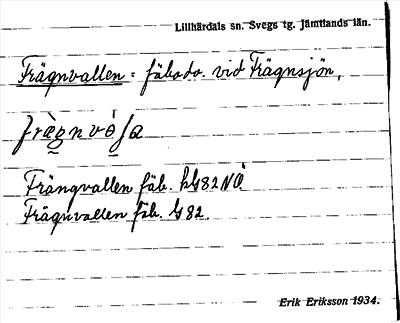 Lillhärdals sn. Svegs tg. Jämtlands län.
Frägnvallen = fäbodo. vid Frägnsjön,
Frängvallen fäb. hG82NO
Frägnvallen fäb. G82.
Erik Eriksson 1934.